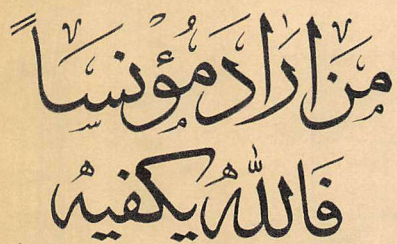 مَنْ اَرَادَ مُؤْنِسَاً
فَاللّٰهُ يَكْفِيهُ